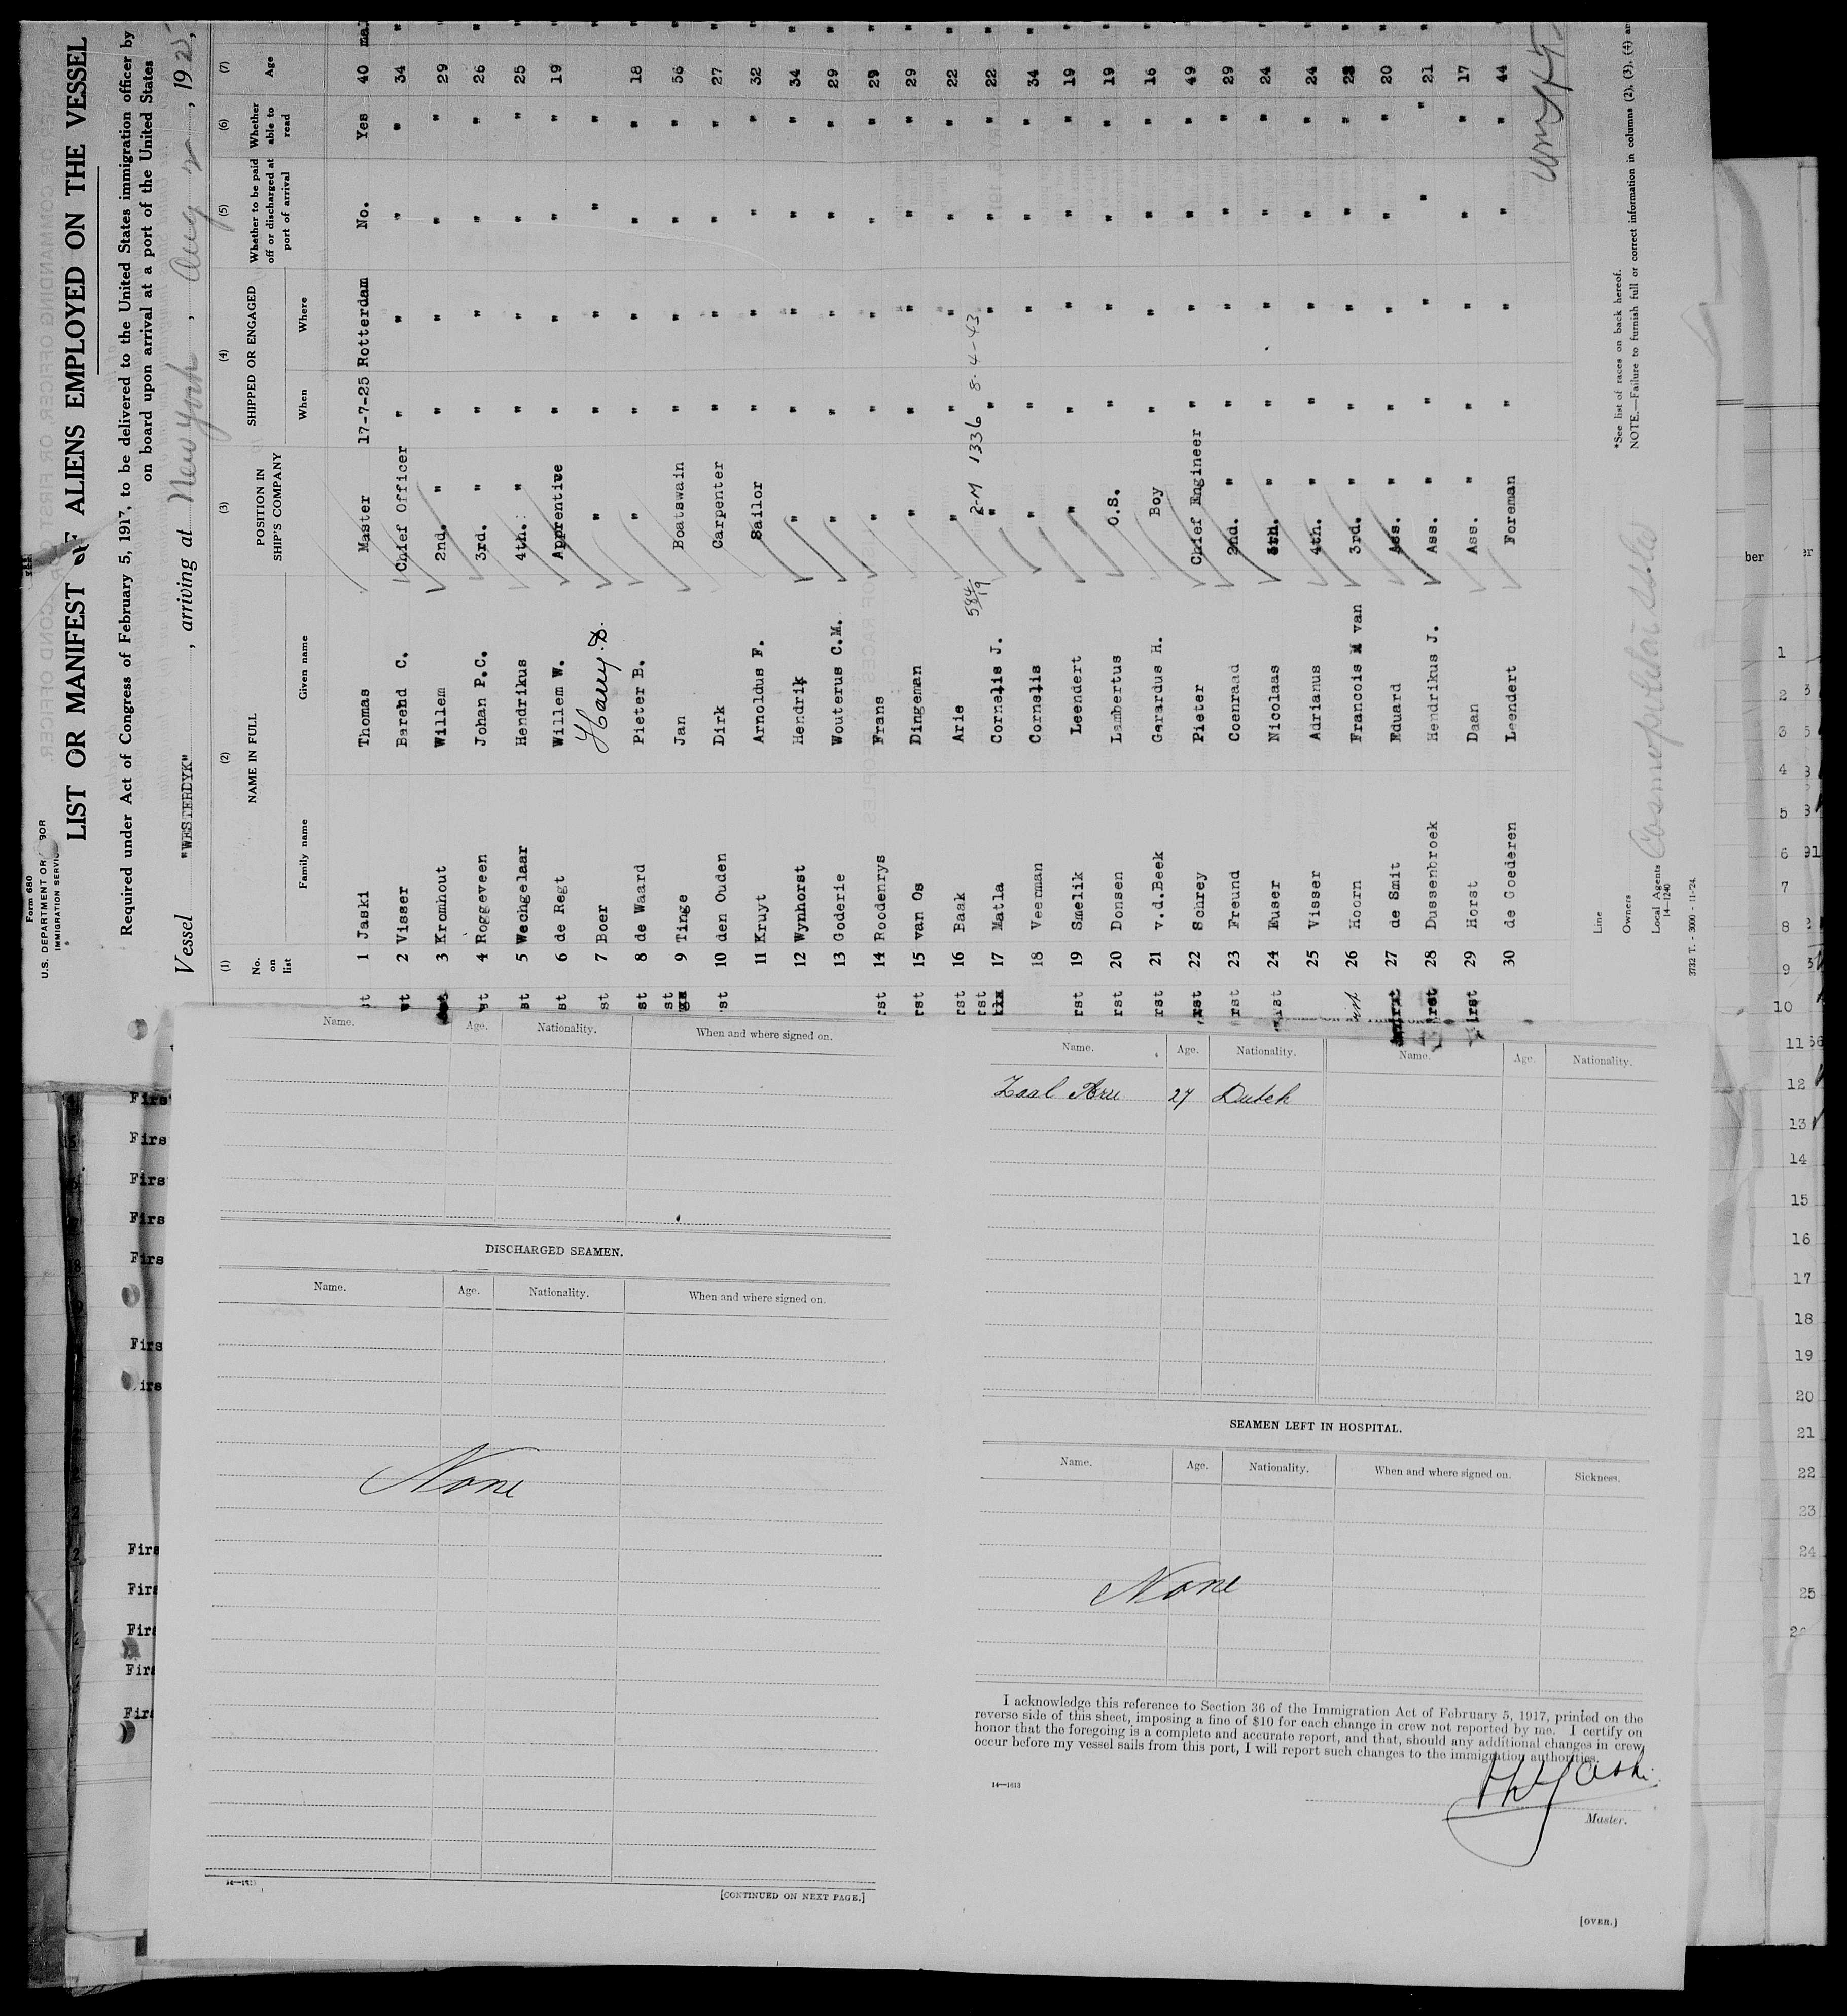 Form 680
U.S. DEPARTMENT OF LABOR
IMMIGRATION SERVICE
LIST OR MANIFEST OF ALIENS EMPLOYED ON THE VESSEL
Required under Act of Congress of February 5, 1917, to be delivered to the United States immigration officer by
on board upon arrival at a port of the United States
Vessel "WESTERDYK", arriving at New York, Aug 2, 1925,
(1) (2) (3) (4) (5) (6) (7)
No. on list NAME IN FULL POSITION IN SHIP'S COMPANY SHIPPED OR ENGAGED Whether to be paid off or discharged at port of arrival Whether able to read Age
Family name Given name When Where
1 Jaski Thomas Master 17-7-25 Rotterdam No. Yes 40
2 Visser Barend C. Chief Officer " " " " 34
3 Kromhout Willem 2nd. " " " " " 29
4 Roggeveen Johan P.C. 3rd. " " " " " 26
5 Wechgelaar Hendrikus 4th. " " " " " 25
6 de Regt Willem W. Apprentice " " " " 19
7 Boer Harry D. " " " " "
8 de Waard Pieter B. " " " " " 18
9 Tinge Jan Boatswain " " " " 56
10 den Ouden Dirk Carpenter " " " " 27
11 Kruyt Arnoldus F. Sailor " " " " 32
12 Wynhorst Hendrik " " " " " 34
13 Goderie Wouterus C.M. " " " " " 29
14 Roodenrys Frans " " " " " 29
15 van Os Dingeman " " " " " 29
16 Baak Arie " " " " " 22
584/19 2-M 1336 8-4-43
17 Matla Cornelis J. " " " " " 22
18 Veerman Cornelis " " " " " 34
19 Smelik Leendert " " " " " 19
20 Donsen Lambertus O.S. " " " " 19
21 v.d.Beek Gerardus H. Boy " " " " 16
22 Schrey Pieter Chief Engineer " " " " 49
23 Freund Coenraad 2nd. " " " " " 29
24 Euser Nicolaas 3th. " " " " " 24
25 Visser Adrianus 4th. " " " " " 24
26 Hoorn Francois M van 3rd. " " " " " 23
27 de Smit Eduard Ass. " " " " " 20
28 Dussenbroek Hendrikus J. Ass. " " " " " 21
29 Horst Daan Ass. " " " " " 17
30 de Goederen Leendert Foreman " " " " 44
Line
Owners
Local Agents
14-1240
*See list of races on back hereof.
NOTE.—Failure to furnish full or correct information in columns (2), (3), (4) an
3732 T. - 3000 - 11-'24.
Name. Age. Nationality. When and where signed on.
DISCHARGED SEAMEN.
Name. Age. Nationality. When and where signed on.
None
[CONTINUED ON NEXT PAGE.]
Name. Age. Nationality. Name. Age. Nationality.
Zaal Arie 27 Dutch
SEAMEN LEFT IN HOSPITAL.
Name. Age. Nationality. When and where signed on. Sickness.
None
I acknowledge this reference to Section 36 of the Immigration Act of February 5, 1917, printed on the
reverse side of this sheet, imposing a fine of $10 for each change in crew not reported by me. I certify on
honor that the foregoing is a complete and accurate report, and that, should any additional changes in crew
occur before my vessel sails from this port, I will report such changes to the immigration authorities.
14—1613
Th Jaski
Master.
[OVER.]